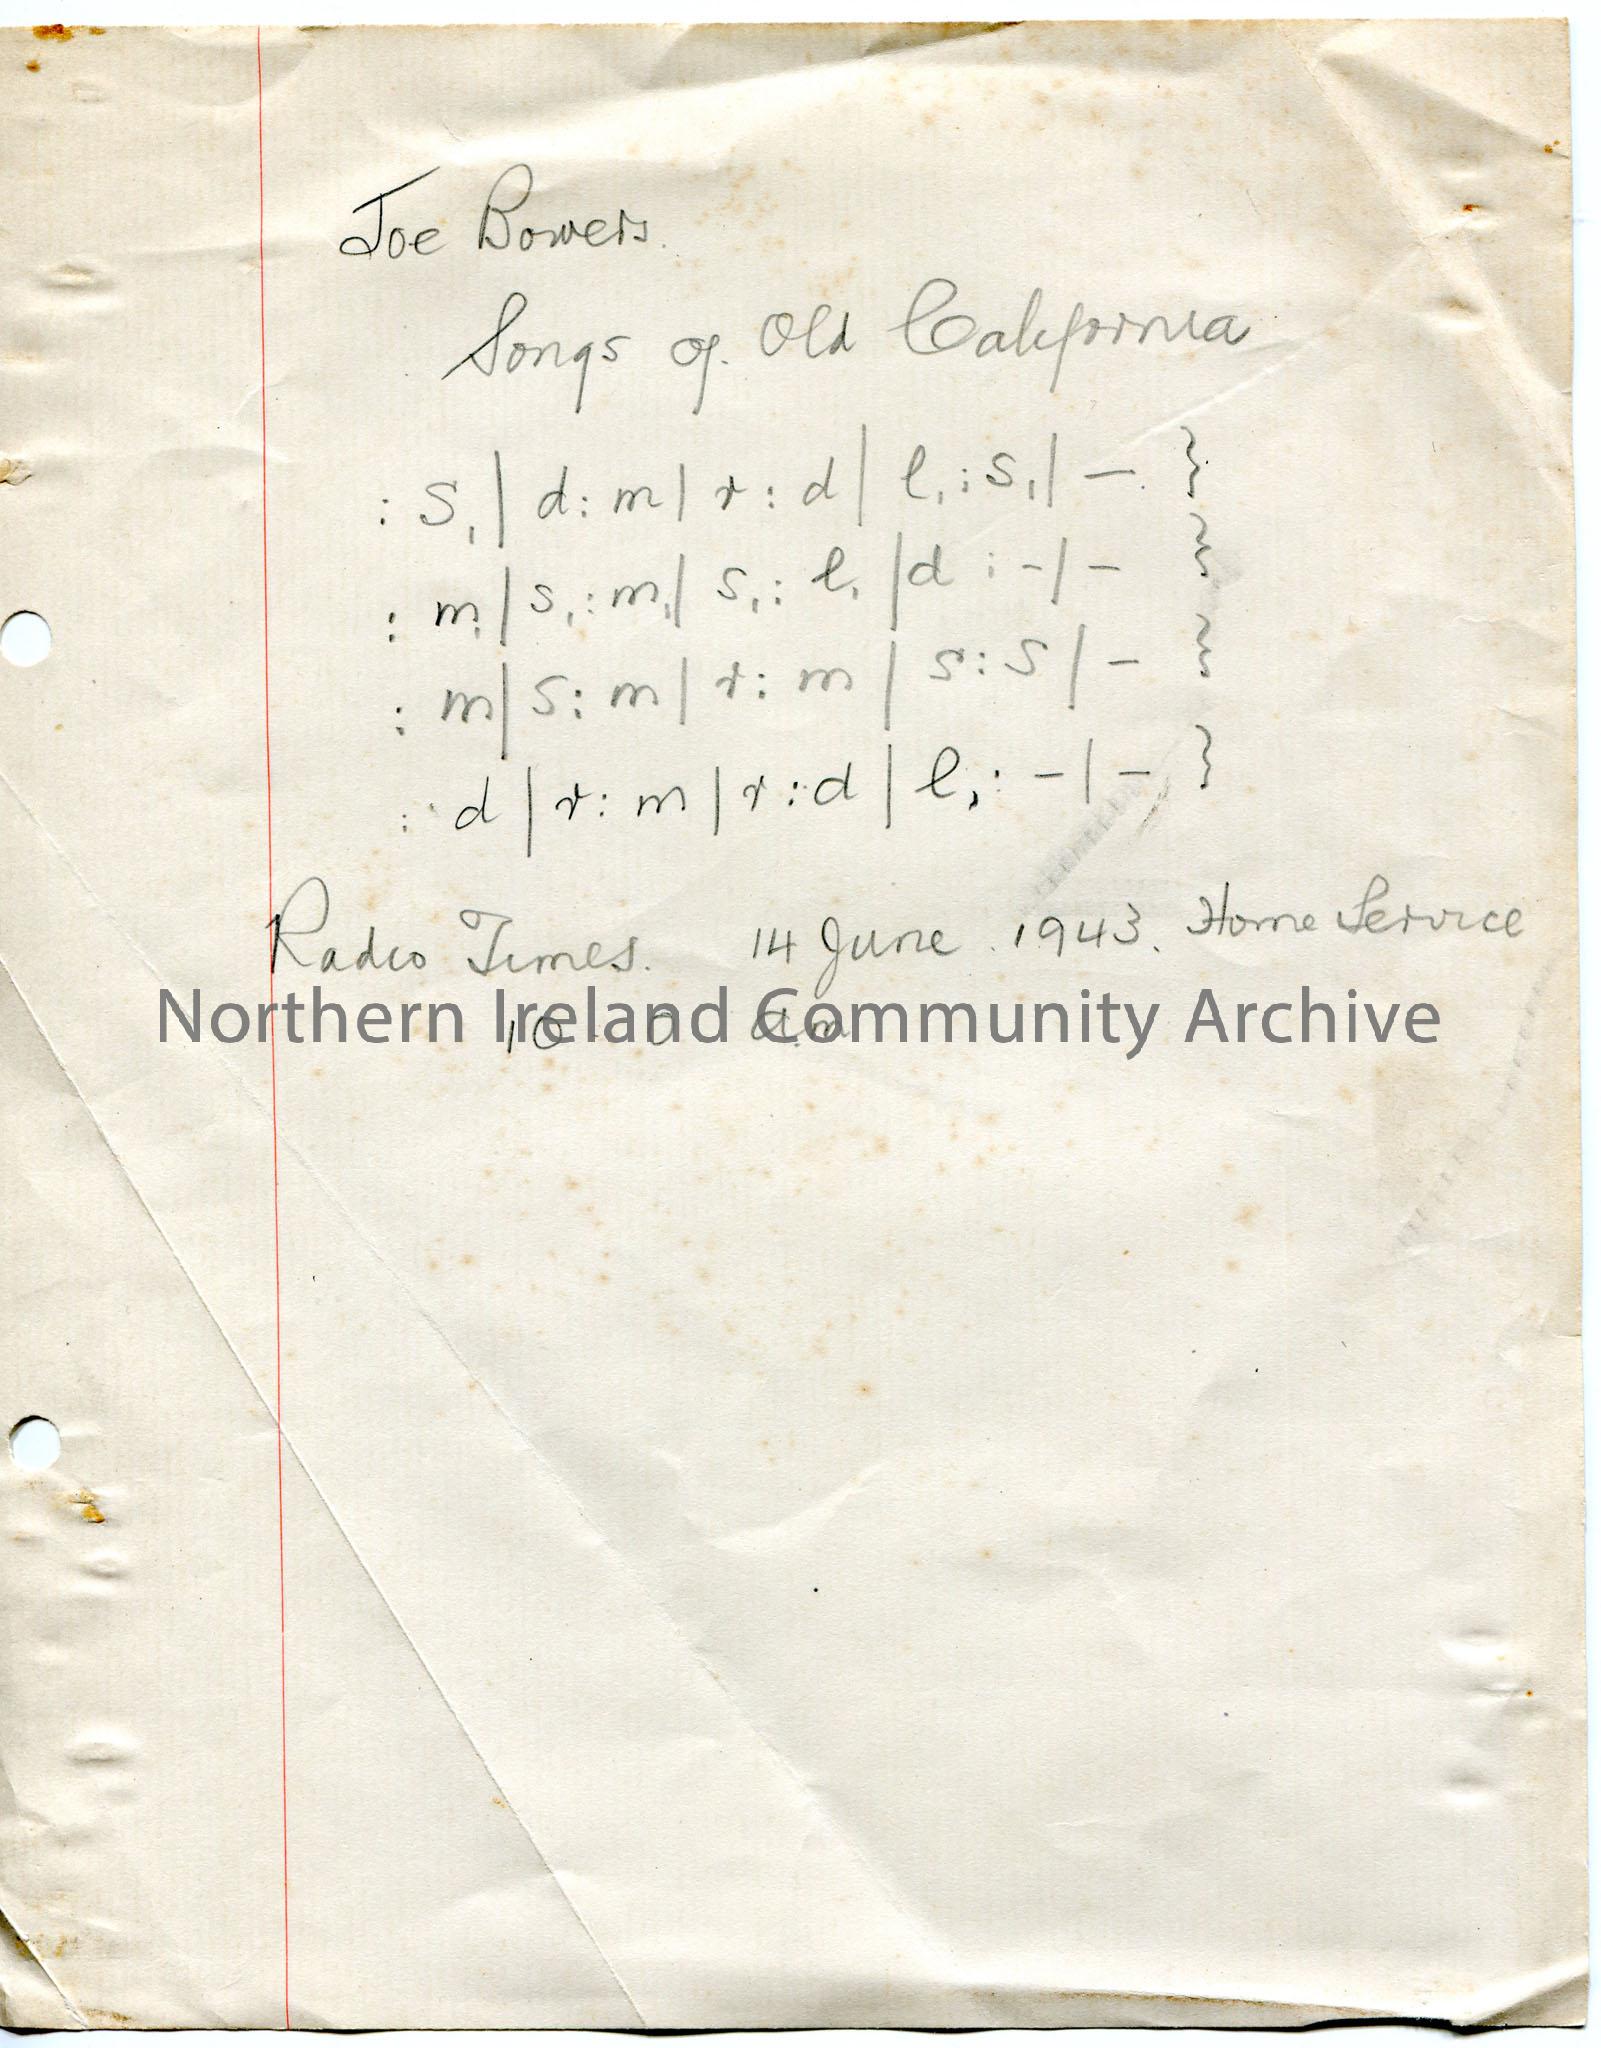 Joe Bowers.
Songs of Old California
: S₁ | d : m | r : d | l₁ : S₁ | - . }
: m₁ | s₁ : m₁ | s₁ : l₁ | d : - | - }
: m | s : m | r : m | s : s | - }
: d | r : m | r : d | l₁ : - | - }
Radio Times. 14 June. 1943. Home Service
10 - 0 a.m
Northern Ireland Community Archive